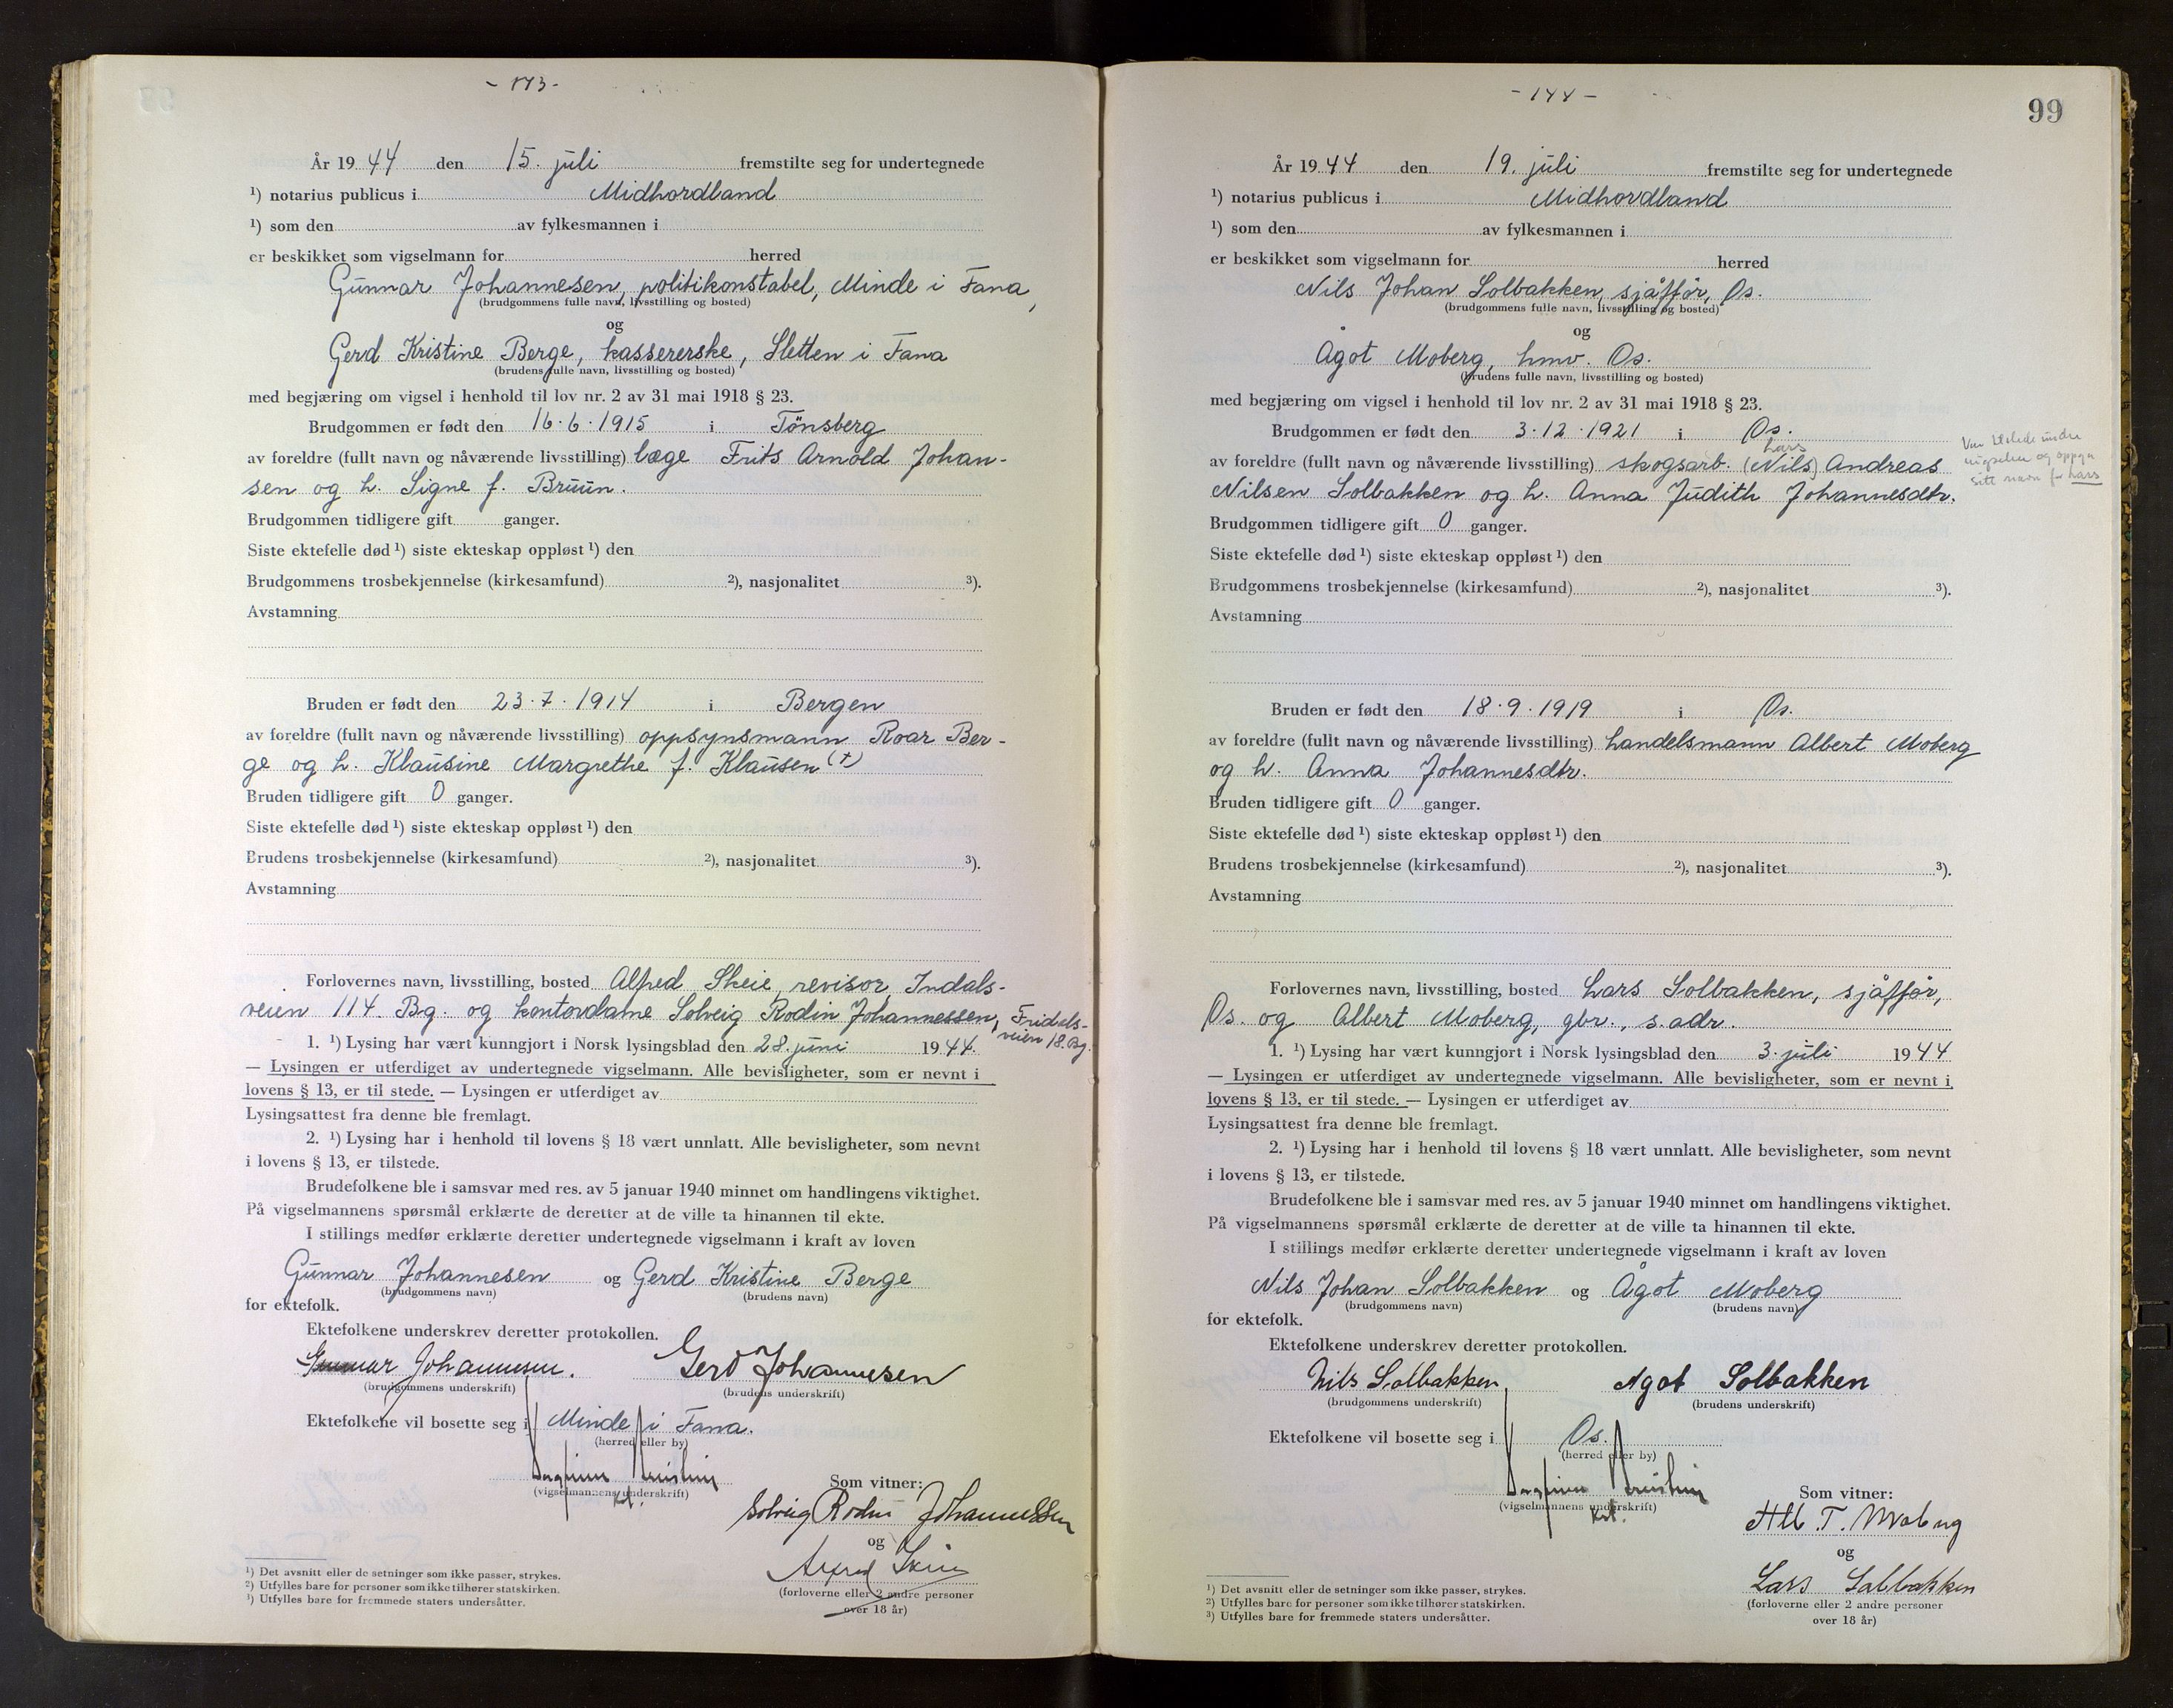 - 143 -
År 1944 den 15. juli fremstilte seg for undertegnede
¹) notarius publicus i Midhordland
¹) som den av fylkesmannen i
er beskikket som vigselmann for herred
Gunnar Johannesen, politikonstabel, Minde i Fana,
(brudgommens fulle navn, livsstilling og bosted)
og
Gerd Kristine Berge, kassererske, Sletten i Fana
(brudens fulle navn, livsstilling og bosted)
med begjæring om vigsel i henhold til lov nr. 2 av 31 mai 1918 § 23.
Brudgommen er født den 16.6.1915 i Tönsberg
av foreldre (fullt navn og nåværende livsstilling) læge Frits Arnold Johan-
sen og h. Signe f. Bruun.
Brudgommen tidligere gift ganger.
Siste ektefelle død ¹) siste ekteskap oppløst ¹) den
Brudgommens trosbekjennelse (kirkesamfund) ²), nasjonalitet ³).
Avstamning
Bruden er født den 23.7.1914 i Bergen
av foreldre (fullt navn og nåværende livsstilling) oppsynsmann Roar Ber-
ge og h. Klausine Margrethe f. Klausen (†)
Bruden tidligere gift 0 ganger.
Siste ektefelle død ¹) siste ekteskap oppløst ¹) den
Brudens trosbekjennelse (kirkesamfund) ²), nasjonalitet ³).
Avstamning
Forlovernes navn, livsstilling, bosted Alfred Skeie, revisor, Indals-
veien 114. Bg. og kontordame Solveig Rodin Johannessen, Fridals-
veien 18. Bg.
1. ¹) Lysing har vært kunngjort i Norsk lysingsblad den 28. juni 1944.
— Lysingen er utferdiget av undertegnede vigselmann. Alle bevisligheter, som er nevnt i
lovens § 13, er til stede. — Lysingen er utferdiget av
Lysingsattest fra denne ble fremlagt.
2. ¹) Lysing har i henhold til lovens § 18 vært unnlatt. Alle bevisligheter, som nevnt
i lovens § 13, er tilstede.
Brudefolkene ble i samsvar med res. av 5 januar 1940 minnet om handlingens viktighet.
På vigselmannens spørsmål erklærte de deretter at de ville ta hinannen til ekte.
I stillings medfør erklærte deretter undertegnede vigselmann i kraft av loven
Gunnar Johannesen og Gerd Kristine Berge
(brudgommens navn) (brudens navn)
for ektefolk.
Ektefolkene underskrev deretter protokollen.
Gunnar Johannesen. Gerd Johannesen
(brudgommens underskrift) (brudens underskrift)
Ektefolkene vil bosette seg i Minde i Fana.
(herred eller by)
(vigselmannens underskrift)
kst.
Som vitner:
Solveig Rodin Johannessen
og
Alfred Skeie
(forloverne eller 2 andre personer
over 18 år)
¹) Det avsnitt eller de setninger som ikke passer, strykes.
²) Utfylles bare for personer som ikke tilhører statskirken.
³) Utfylles bare for fremmede staters undersåtter.
- 144 -
99
År 1944 den 19. juli fremstilte seg for undertegnede
¹) notarius publicus i Midhordland
¹) som den av fylkesmannen i
er beskikket som vigselmann for herred
Nils Johan Solbakken, sjåffør, Os.
(brudgommens fulle navn, livsstilling og bosted)
og
Ågot Moberg, hmv. Os.
(brudens fulle navn, livsstilling og bosted)
med begjæring om vigsel i henhold til lov nr. 2 av 31 mai 1918 § 23.
Brudgommen er født den 3.12.1921 i Os.
Lars
av foreldre (fullt navn og nåværende livsstilling) skogsarb. (Nils) Andreas
Nilsen Solbakken og h. Anna Judith Johannesdtr.
Var tilstede under
vigselen og oppga
sitt navn for Lars
Brudgommen tidligere gift 0 ganger.
Siste ektefelle død ¹) siste ekteskap oppløst ¹) den
Brudgommens trosbekjennelse (kirkesamfund) ²), nasjonalitet ³).
Avstamning
Bruden er født den 18.9.1919 i Os.
av foreldre (fullt navn og nåværende livsstilling) handelsmann Albert Moberg
og h. Anna Johannesdtr.
Bruden tidligere gift 0 ganger.
Siste ektefelle død ¹) siste ekteskap oppløst ¹) den
Brudens trosbekjennelse (kirkesamfund) ²), nasjonalitet ³).
Avstamning
Forlovernes navn, livsstilling, bosted Lars Solbakken, sjåffør,
Os. og Albert Moberg, gbr., s. adr.
1. ¹) Lysing har vært kunngjort i Norsk lysingsblad den 3. juli 1944
— Lysingen er utferdiget av undertegnede vigselmann. Alle bevisligheter, som er nevnt i
lovens § 13, er til stede. — Lysingen er utferdiget av
Lysingsattest fra denne ble fremlagt.
2. ¹) Lysing har i henhold til lovens § 18 vært unnlatt. Alle bevisligheter, som nevnt
i lovens § 13, er tilstede.
Brudefolkene ble i samsvar med res. av 5 januar 1940 minnet om handlingens viktighet.
På vigselmannens spørsmål erklærte de deretter at de ville ta hinannen til ekte.
I stillings medfør erklærte deretter undertegnede vigselmann i kraft av loven
Nils Johan Solbakken og Ågot Moberg
(brudgommens navn) (brudens navn)
for ektefolk.
Ektefolkene underskrev deretter protokollen.
Nils Solbakken Agot Solbakken
(brudgommens underskrift) (brudens underskrift)
Ektefolkene vil bosette seg i Os.
(herred eller by)
(vigselmannens underskrift)
kst.
Som vitner:
Alb. T. Moberg
og
Lars Solbakken
(forloverne eller 2 andre personer
over 18 år)
¹) Det avsnitt eller de setninger som ikke passer, strykes.
²) Utfylles bare for personer som ikke tilhører statskirken.
³) Utfylles bare for fremmede staters undersåtter.